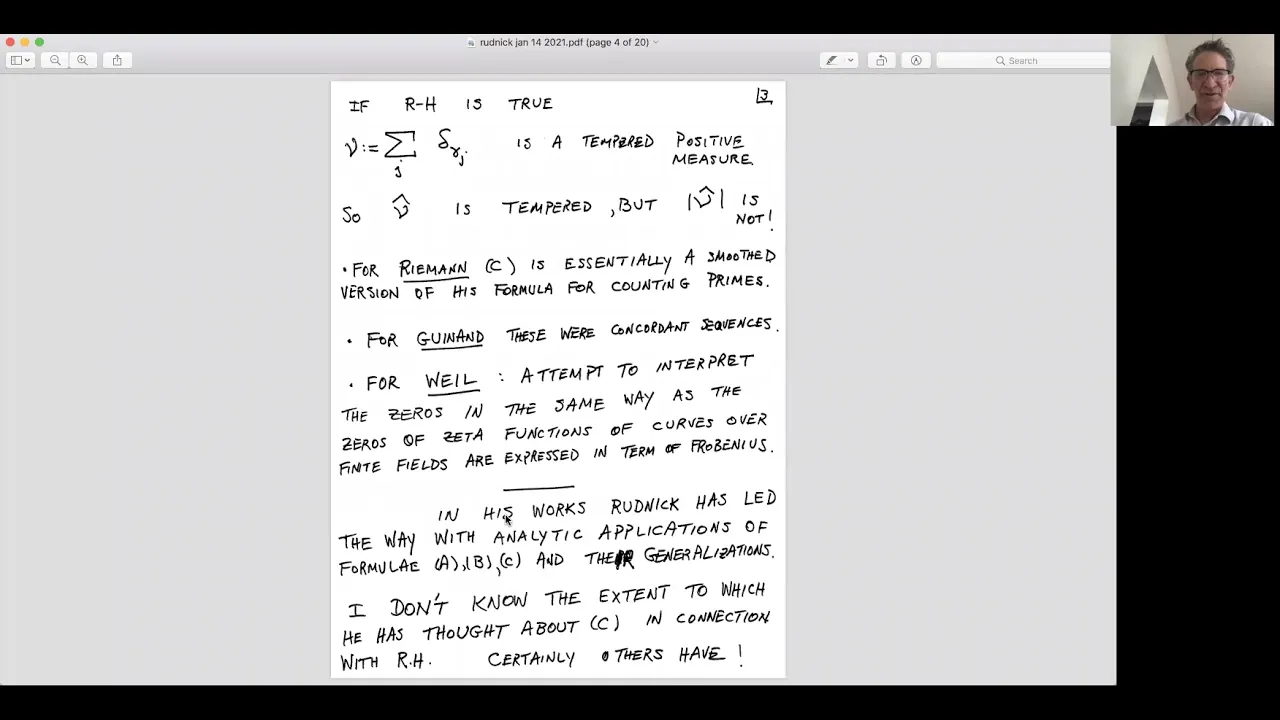 rudnick jan 14 2021.pdf (page 4 of 20)
Search
13
IF R-H IS TRUE
ν := ∑_j δ_γj. IS A TEMPERED POSITIVE MEASURE.
SO ν̂ IS TEMPERED, BUT |ν̂| IS NOT!
• FOR RIEMANN (C) IS ESSENTIALLY A SMOOTHED
VERSION OF HIS FORMULA FOR COUNTING PRIMES.
• FOR GUINAND THESE WERE CONCORDANT SEQUENCES.
• FOR WEIL : ATTEMPT TO INTERPRET
THE ZEROS IN THE SAME WAY AS THE
ZEROS OF ZETA FUNCTIONS OF CURVES OVER
FINITE FIELDS ARE EXPRESSED IN TERM OF FROBENIUS.
IN HIS WORKS RUDNICK HAS LED
THE WAY WITH ANALYTIC APPLICATIONS OF
FORMULAE (A),(B),(C) AND THEIR GENERALIZATIONS.
I DON'T KNOW THE EXTENT TO WHICH
HE HAS THOUGHT ABOUT (C) IN CONNECTION
WITH R.H. CERTAINLY OTHERS HAVE !